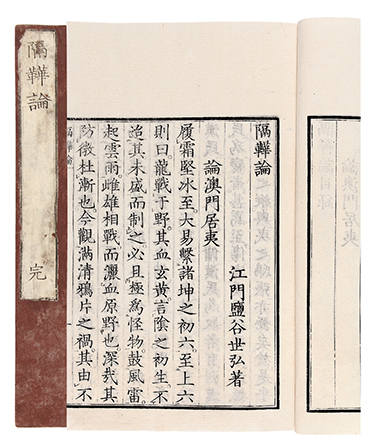 隔鞾論
完
隔鞾論
江門鹽谷世弘著
論澳門居夷
履霜堅冰至大易繫諸坤之初六至上六
則曰龍戰于野其血玄黃言陰之初生不
迨其未盛而制之必且極爲怪物鼓風雷
起雲雨雌雄相戰而灑血原野也深哉其
防微杜漸也今觀滿清鴉片之禍其由不